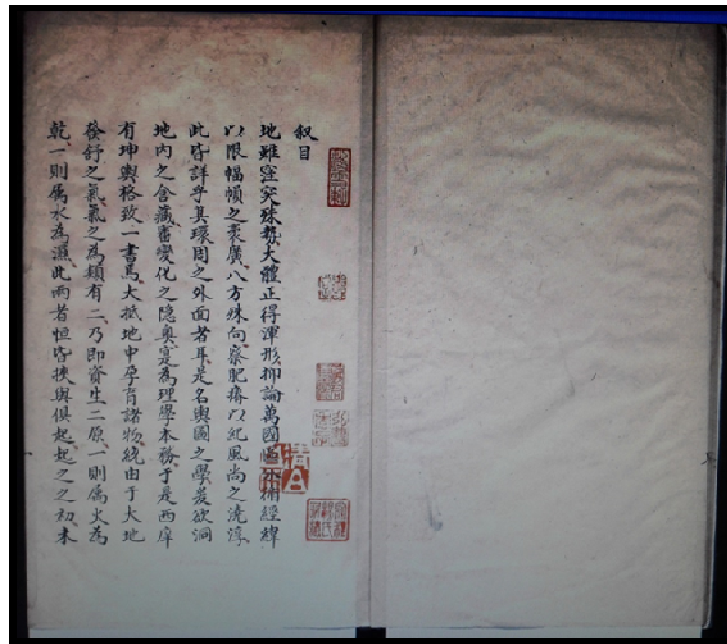 叙目
地雖窪突殊勢大體正得渾形抑論萬國 經緯
以限幅㡡之袤廣八方殊向察肥瘠以紀風尚之澆淳
此皆詳乎員環周之外面者耳是名輿圖之學爰欲洞
地内之含藏審變化之隠奥寔為理學本務于是西庠
有坤輿格致一書焉大抵地中孕育諸物繞由于大地
發舒之氣氣之為類有二乃即資生二原一則属火為
乾一則属水為濕此兩者恒皆挾與俱起起之之初本